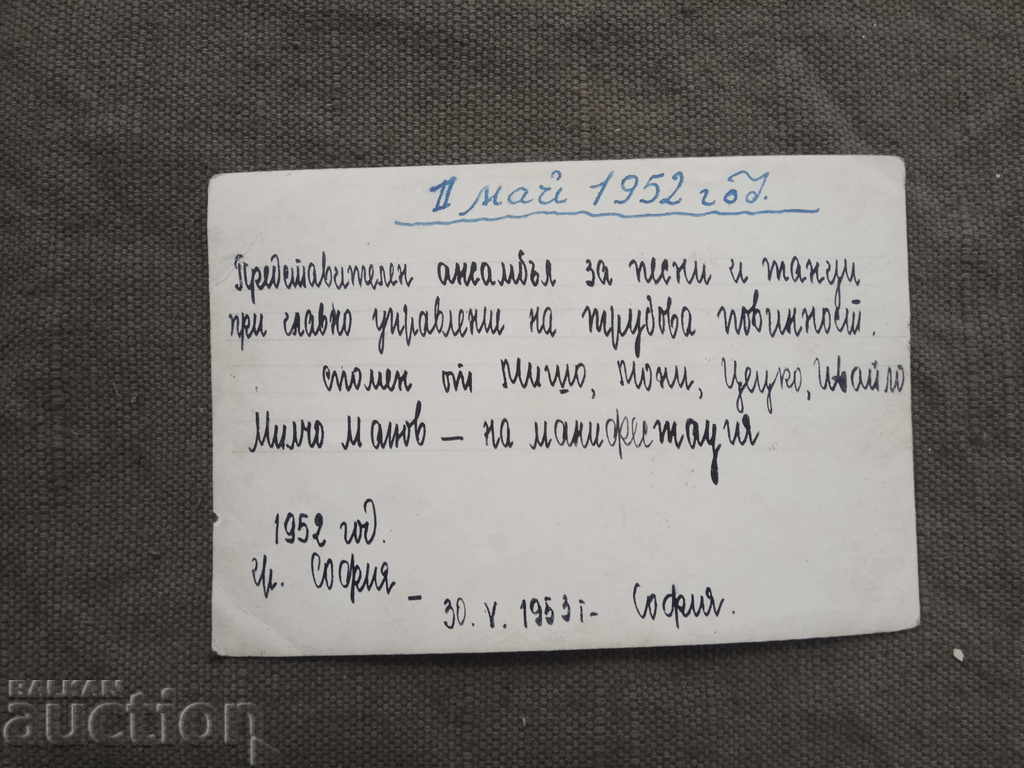 1 май 1952 год.
Представителен ансамбъл за песни и танци
при главно управление на трудова повинност.
спомен от Мишо, Мони, Цецко, Ивайло
Милчо Манов – на манифестация
1952 год.
гр. София –
30. V. 1953 г– София.
BALKAN
auction